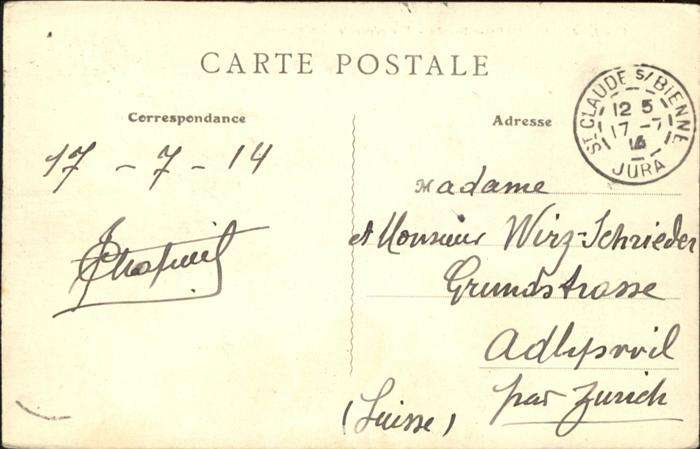 CARTE POSTALE
Correspondance
17 - 7 - 14
Adresse
ST CLAUDE S/ BIENNE
12 5
17 - 7
14
JURA
Madame
et Monsieur Wirz-Schrieder
Grundstrasse
par Zurich
(Suisse)